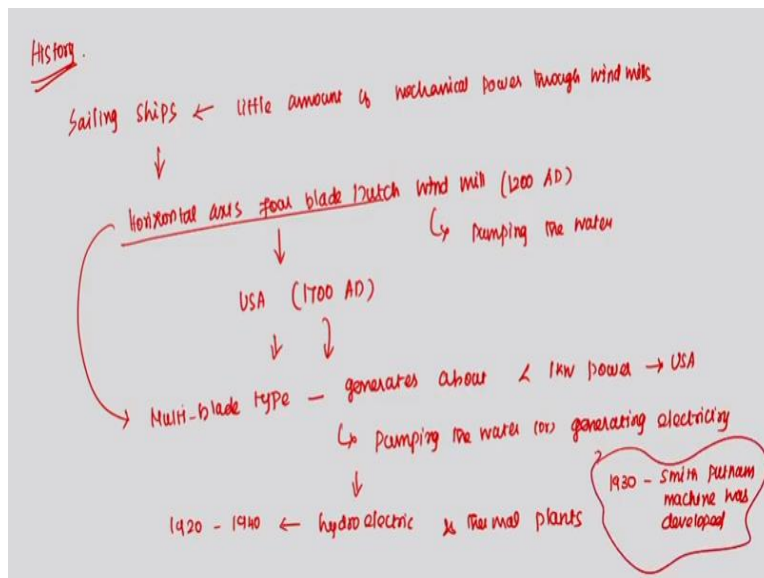 History.
Sailing ships ← little amount of mechanical power through wind mills
↓
Horizontal axis four blade Dutch wind mill (1200 AD)
↳ pumping the water
↓
USA (1700 AD)
↓ ↓
Multi-blade type – generates about < 1kw power → USA
↳ pumping the water (or) generating electricity
↓
1920 - 1940 ← hydroelectric & thermal plants
1930 - Smith putnam
machine was
developed